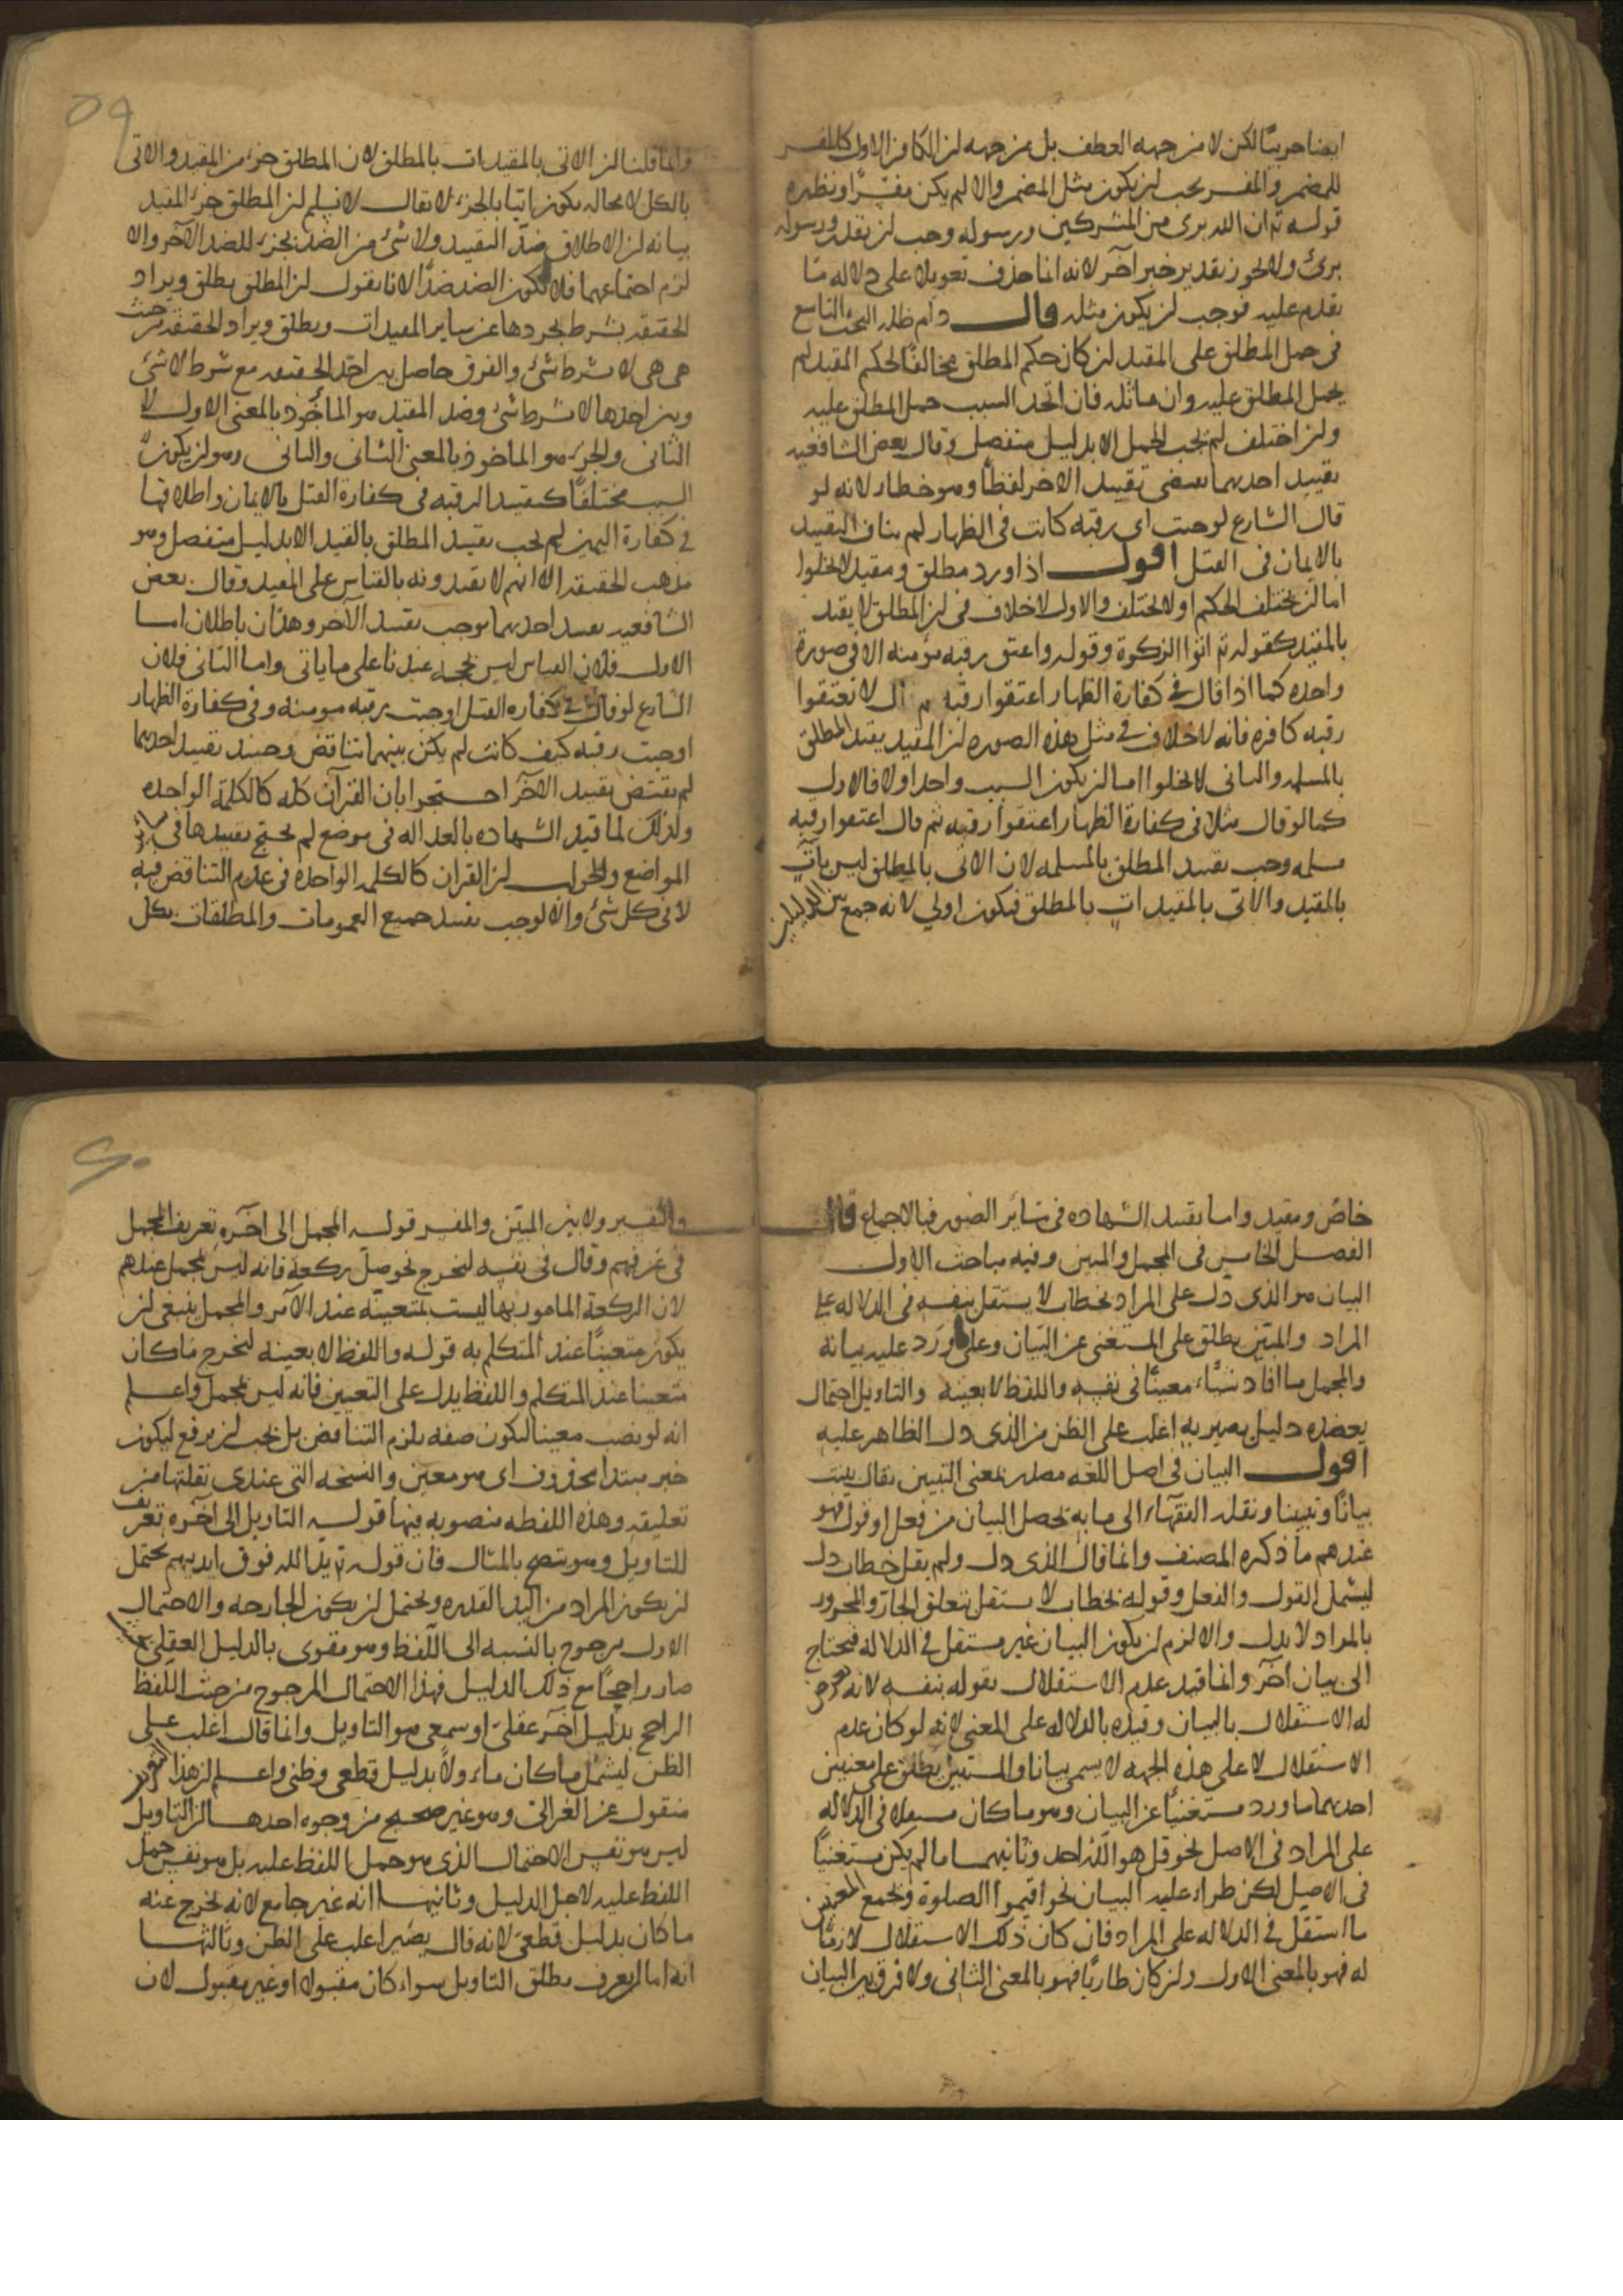 ايضا حربيًا لكن لا من جهه العطف بل من جهه ان الكافر الاول كالمفسر
للمضمر والمفسر يجب ان يكون مثل المضمر والا لم يكن مفسّرًا ونظيره
قوله تع ان الله برى من المشركين ورسوله وجب ان يقدر ورسوله
برئ ولا يجوز تقدير خبر آخر لانه انما حذف تعويلا على دلاله ما
تقدم عليه فوجب ان يكون مثله قال دام ظله البحث التاسع
فى حمل المطلق على المقيد ان كان حكم المطلق مخالفًا لحكم المقيد لم
يحمل المطلق عليه وان ماثله فان اتحد السبب حمل المطلق عليه
وان اختلف لم يجب الحمل الا بدليل منفصل وقال بعض الشافعيه
تقييد احديهما يقتضى تقييد الاخر لفظًا وهو خطا لانه لو
قال الشارع اوجبت اى رقبه كانت فى الظهار لم يناف التقييد
بالايمان فى القتل اقول اذا ورد مطلق ومقيد لا يخلوا
اما ان يختلف الحكم او لا يختلف والاول لا خلاف فى ان المطلق لا يقيد
بالمقيد كقوله تع اتوا الزكوة وقوله واعتق رقبه مؤمنه الا فى صورة
واحده كما اذا قال فى كفارة الظهار اعتقوا رقبه ثم قال لا تعتقوا
رقبه كافره فانه لا خلاف فى مثل هذه الصوره ان المقيد يقيد المطلق
بالمسلمه والثانى لا يخلوا اما ان يكون السبب واحدا اولا فالاول
كما لو قال مثلا فى كفارة الظهار اعتقوا رقبه ثم قال اعتقوا رقبه
مسلمه وجب تقييد المطلق بالمسلمه لان الاتى بالمطلق ليس باتٍ
بالمقيد والاتى بالمقيد اتٍ بالمطلق فيكون اولي لانه جمع بين الدليلين
وانما قلنا ان الاتى بالمقيد ات بالمطلق لان المطلق جزء من المقيد والاتى
بالكل لا محاله يكون اتيا بالجزء لا يقال لا نسلم ان المطلق جزء المقيد
بيانه ان الاطلاق ضد التقييد ولا شئ من الضد بجزء للضد الآخر والا
لزم اجتماعهما فلا يكون الضد ضدًا لانا نقول ان المطلق يطلق ويراد
الحقيقه بشرط تجردها عن ساير المقيدات ويطلق ويراد الحقيقه من حيث
هى هى لا بشرط شئ والفرق حاصل بين اخذ الحقيقه مع شرط لا شئ
وبين اخذها لا بشرط شئ وضد المقيد هو الماخوذ بالمعنى الاول لا
الثانى والجزء هو الماخوذ بالمعنى الثانى والثانى وهو ان يكون
السبب مختلفًا كتقييد الرقبه فى كفارة القتل بالايمان واطلاقها
فى كفارة اليمين لم يجب تقييد المطلق بالقيد الا بدليل منفصل وهو
مذهب الحقيقه الا انهم لا يقيدونه بالقياس على المقيد وقال بعض
الشافعيه تقييد احديهما يوجب تقييد الآخر وهذان باطلان اما
الاول فلان القياس ليس بحجه عندنا على ما ياتى واما الثانى فلان
الشارع لو قال فى كفاره القتل اوجبت رقبه مومنه وفى كفارة الظهار
اوجبت رقبه كيف كانت لم يكن بينهما تناقض وحينئذ تقييد احديهما
لم يقتض تقييد الآخر احتجوا بان القرآن كله كالكلمة الواحده
ولذلك لما قيد الشهاده بالعداله فى موضع لم يحتج تقييدها فى ساير
المواضع والجواب ان القران كالكلمه الواحده فى عدم التناقض فيه
لا فى كل شئ والا لوجب تقييد جميع العمومات والمطلقات بكل
خاصّ ومقيد واما تقييد الشهاده فى سائر الصور فبالاجماع قال
الفصل الخامس فى المجمل والمبين وفيه مباحث الاول
البيان هو الذى دل على المراد بخطاب لا يستقل بنفسه فى الدلاله على
المراد والمبيّن يطلق على المستغنى عن البيان وعلى ورد عليه بيانه
والمجمل ما افاد شيئًا معينًا فى نفسه واللفظ لا يعينه والتاويل احتمال
يعضده دليل يصير به اغلب على الظن من الذى دل الظاهر عليه
اقول البيان فى اصل اللغه مصدر بمعنى التبيين يقال بينت
بيانًا وتبيينا ونقله الفقهاء الى ما به تحصل البيان من فعل او قول فهو
عندهم ما ذكره المصنف وانما قال الذى دل ولم يقل خطاب دل
ليشمل القول والفعل وقوله بخطاب لا يستقل يتعلق الجار والمجرور
بالمراد لا بدل والا لزم ان يكون البيان غير مستقل فى الدلاله فيحتاج
الى بيان آخر وانما قيد عدم الاستقلال بقوله بنفسه لانه
له الاستقلال بالبيان وقيده بالدلاله على المعنى لانه لو كان عدم
الاستقلال لا على هذه الجهه لا يسمى بيانا والمستبين يطلق على معنيين
احديهما ما ورد مستغنيًا عن البيان وهو ما كان مستقلا فى الدلاله
على المراد فى الاصل نحو قل هو الله احد وثانيهما ما لم يكن مستغنيًا
فى الاصل لكن طراء عليه البيان نحو اقيموا الصلوة ويجمع المعنيين
ما استقل فى الدلاله على المراد فان كان ذلك الاستقلال لازمًا
له فهو بالمعنى الاول وان كان طاريًا فهو بالمعنى الثانى ولا فرق بين البيان
والتفسير ولا بين المبيّن والمفسر قوله المجمل الى اخره تعريف المجمل
فى عرفهم وقال فى نفسه ليخرج نحو صلّ ركعة فانه ليس بمجمل عندهم
لان الركعة المامور بها ليست بمتعينه عند الآمر والمجمل ينبغى ان
يكون متعينًا عند المتكلم به قوله واللفظ لا يعينه ليخرج ما كان
متعينا عند المتكلم واللفظ يدل على التعيين فانه ليس بمجمل واعلم
انه لو نصب معينا ليكون صفه يلزم التناقض بل يجب ان يرفع ليكون
خبر مبتدا محذوف اى هو معين والنسخه التى عندى نقلتها من
تعليقه وهذه اللفظه منصوبه فيها قوله التاويل الى آخره تعريف
للتاويل وهو يتضح بالمثال فان قوله تع يد الله فوق ايديهم يحتمل
ان يكون المراد من اليد القدره ويحتمل ان يكون الجارحه والاحتمال
الاول مرجوح بالنسبه الى اللفظ وهو مقوى بالدليل العقلى
صار راجحًا مع ذلك الدليل فهذا الاحتمال المرجوح من حيث اللفظ
الراجح بدليل آخر عقلى او سمعى هو التاويل وانما قال اغلب على
الظن ليشمل ما كان ماءولًا بدليل قطعى وظنى واعلم ان هذا التعريف
منقول عن الغزالى وهو غير صحيح من وجوه احدها ان التاويل
ليس هو نفس الاحتمال الذى هو حمل اللفظ عليه بل هو نفس حمل
اللفظ عليه لاجل الدليل وثانيها انه غير جامع لانه يخرج عنه
ما كان بدليل قطعى لانه قال يصير اغلب على الظن وثالثها
انه اما ان يعرف مطلق التاويل سواء كان مقبولا او غير مقبول لان